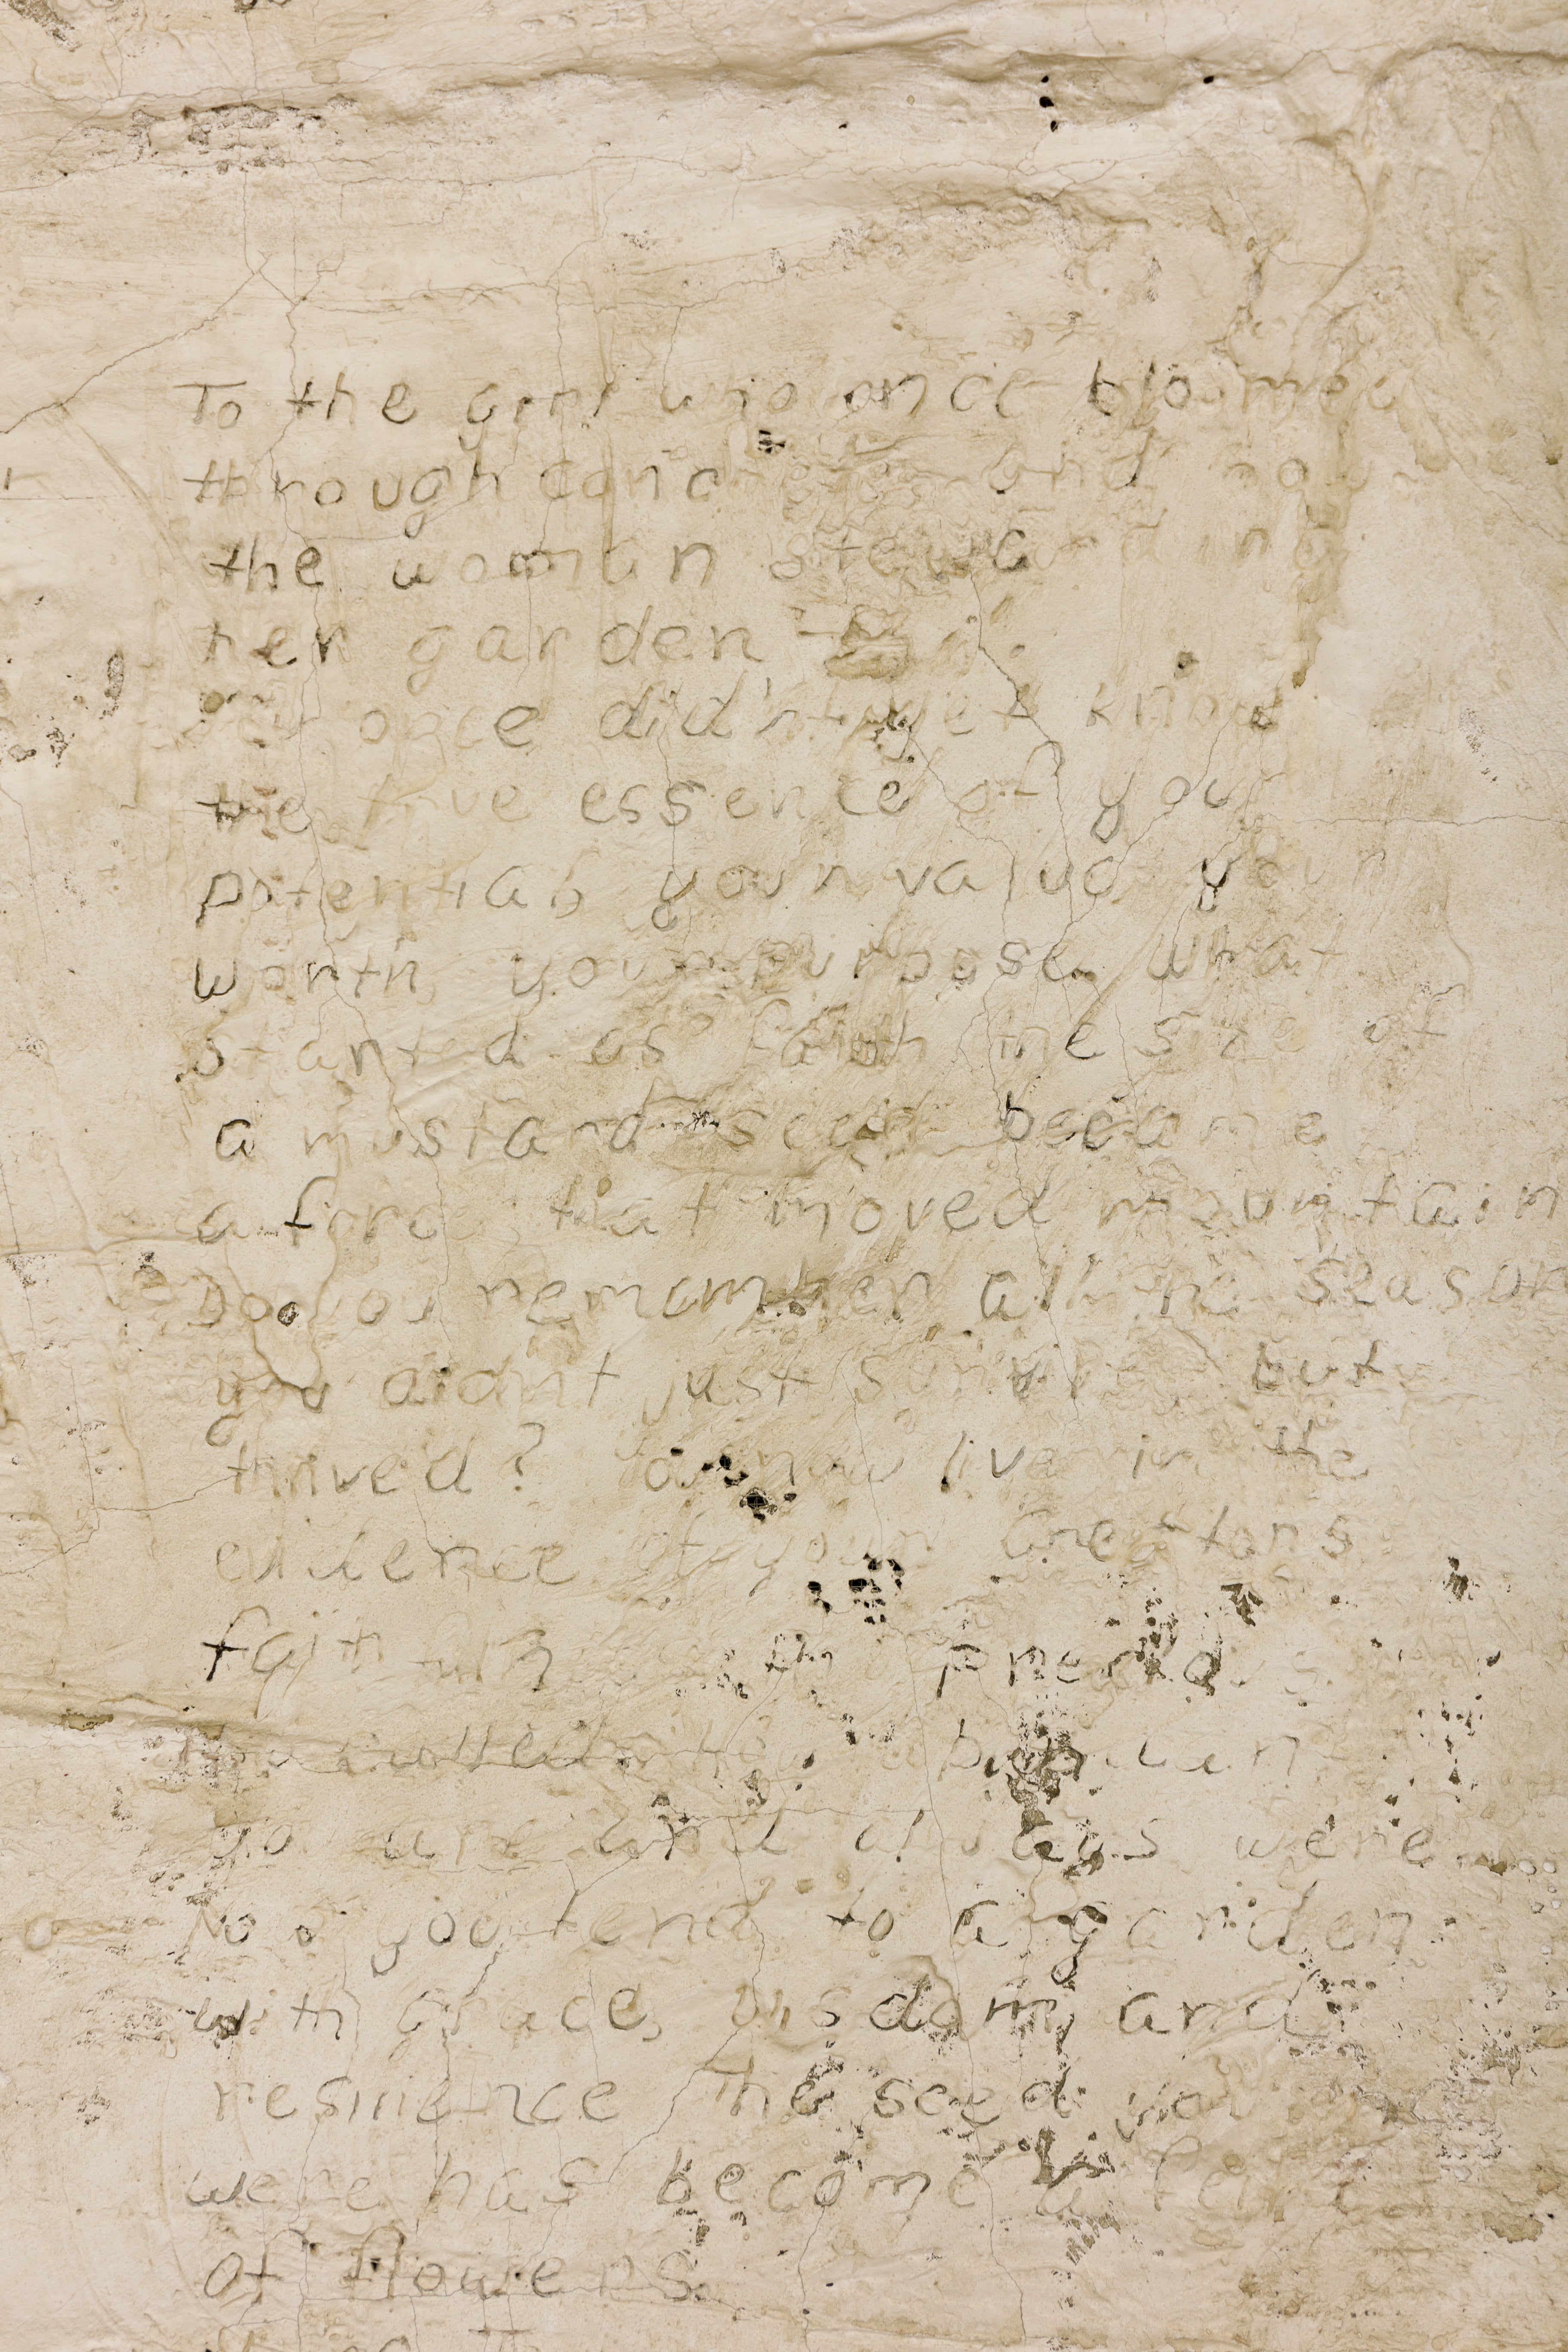 To the girl who once bloomed
through concrete and now
the woman stewarding
her garden
You once didn't yet know
the true essence of your
potential, your value your
worth, your purpose. What
started as faith the size of
a mustard seed became
a force that moved mountain
Do you remember all the season
you didn't just survive but
thrived? You now live in the
evidence of your creators
faithfulness precious
You
are and always were
Now you tend to a garden
with grace, wisdom and
resilience. The seed you
were has become a field
of flowers.